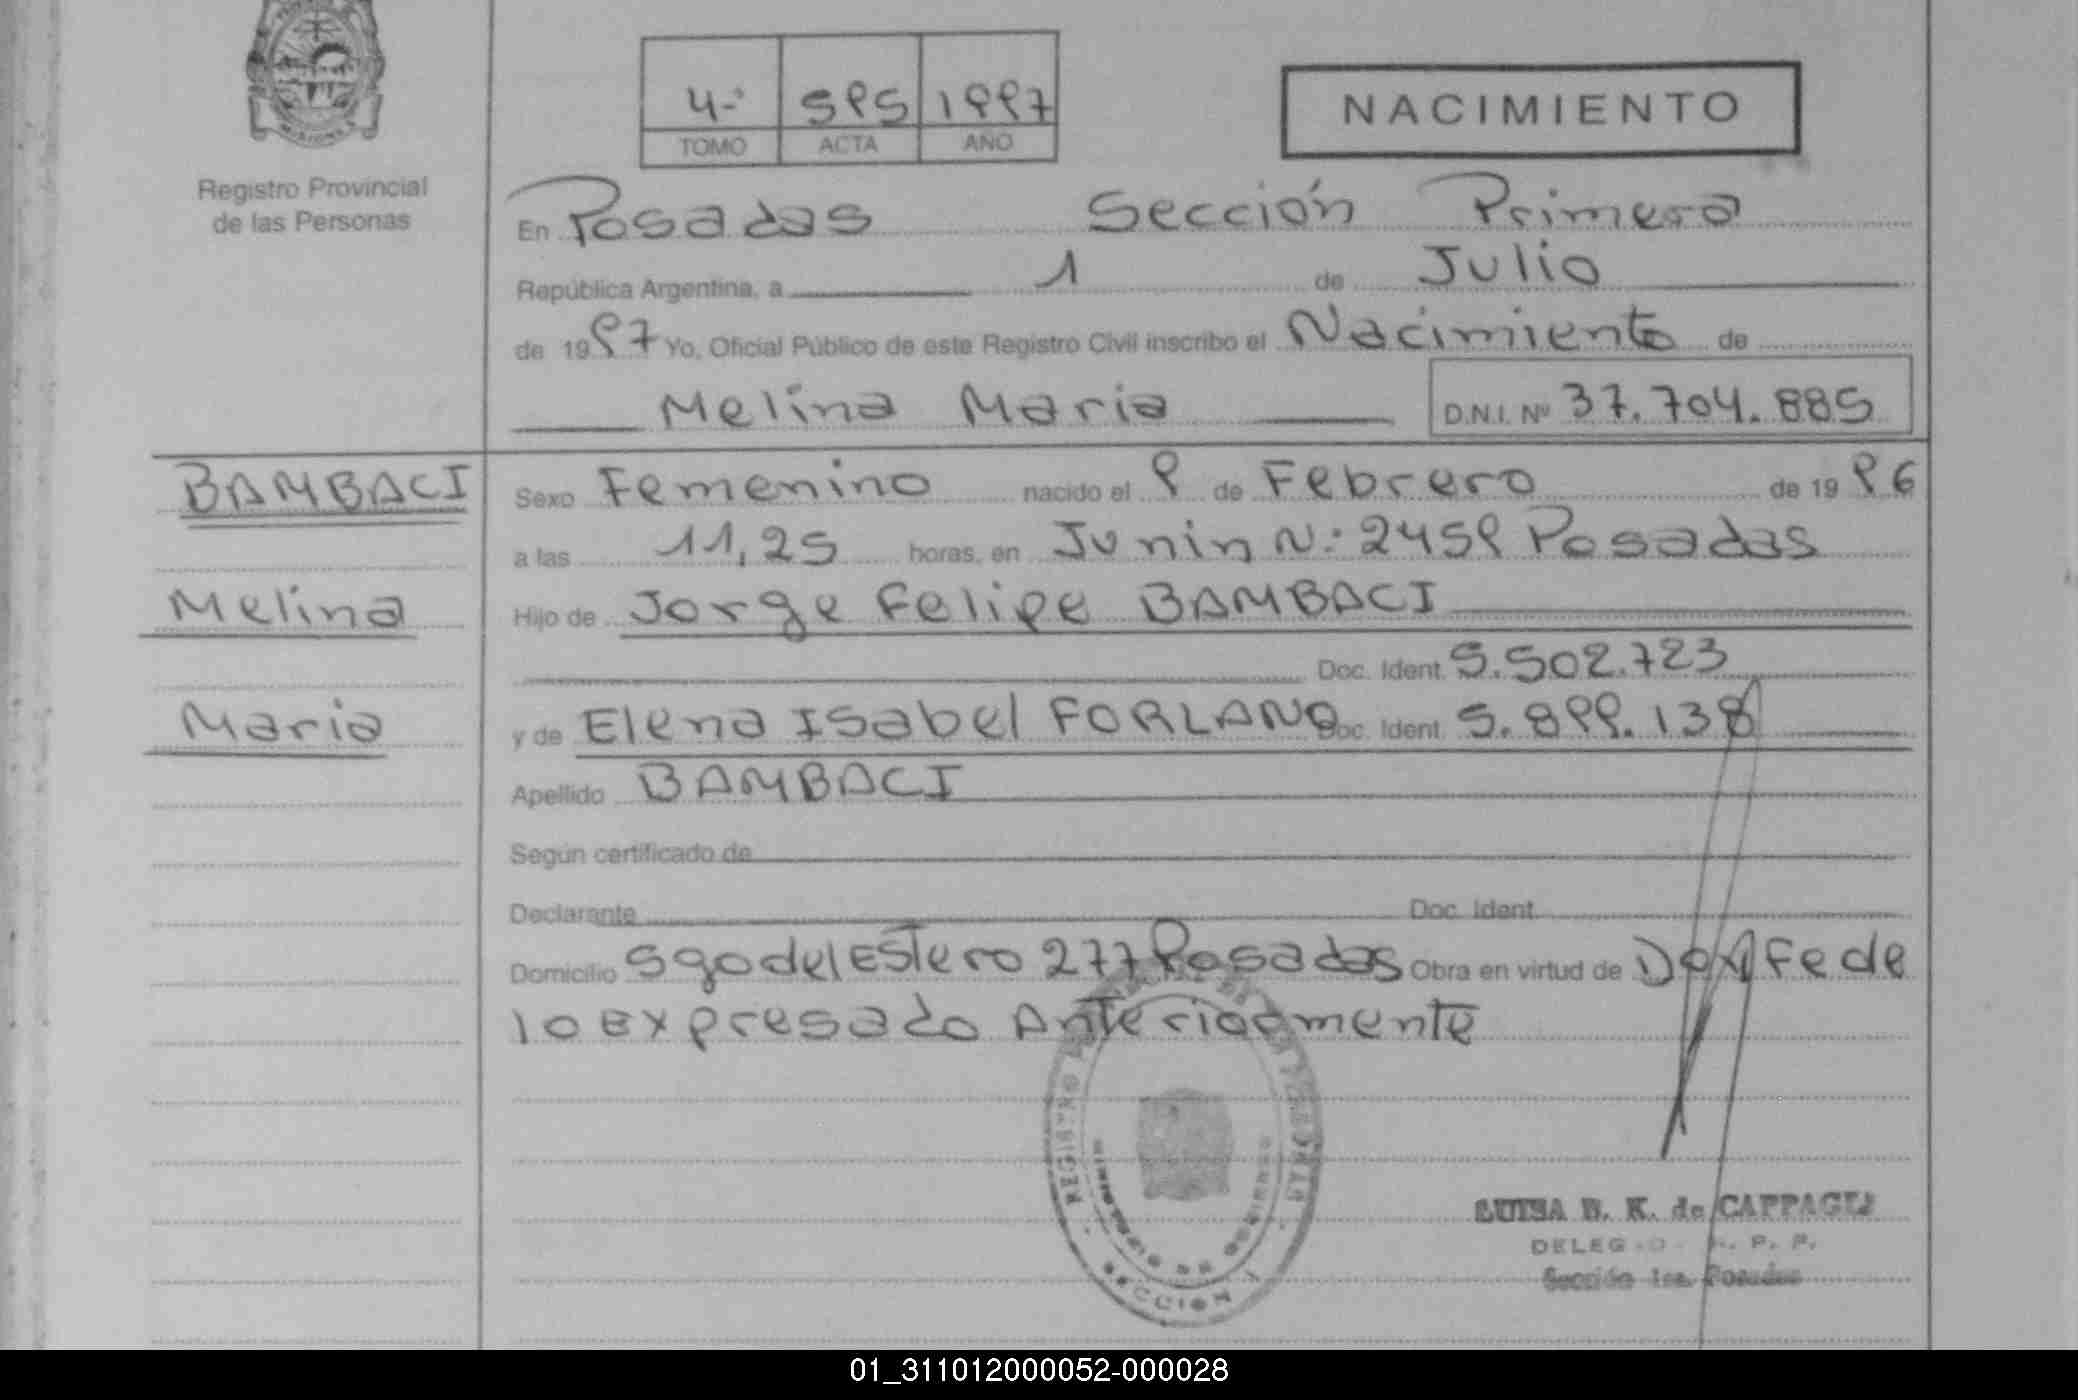 4-° 595 1997
TOMO ACTA AÑO
NACIMIENTO
Registro Provincial
de las Personas
En Posadas Sección Primera
República Argentina, a 1 de Julio
de 1997 Yo, Oficial Público de este Registro Civil inscribo el Nacimiento de
Melina Maria D.N.I. Nº 37.704.885
BAMBACI
Melina
Maria
Sexo Femenino nacido el 9 de Febrero de 1996
a las 11,25 horas, en Junin N: 2459 Posadas
Hijo de Jorge Felipe BAMBACI
Doc. Ident. 5.502.723
y de Elena Isabel FORLANO Doc. Ident. 5.899.138
Apellido BAMBACI
Según certificado de
Declarante Doc. Ident.
Domicilio Sgo del Estero 277 Posadas Obra en virtud de Doy Fe de
lo expresado Anteriormente
REGISTRO PROVINCIAL DE LAS PERSONAS
MINISTERIO DE GOBIERNO
SECCION 1
LUISA B. K. de
R. P. P.
Sección 1ra. Posadas
01_311012000052-000028